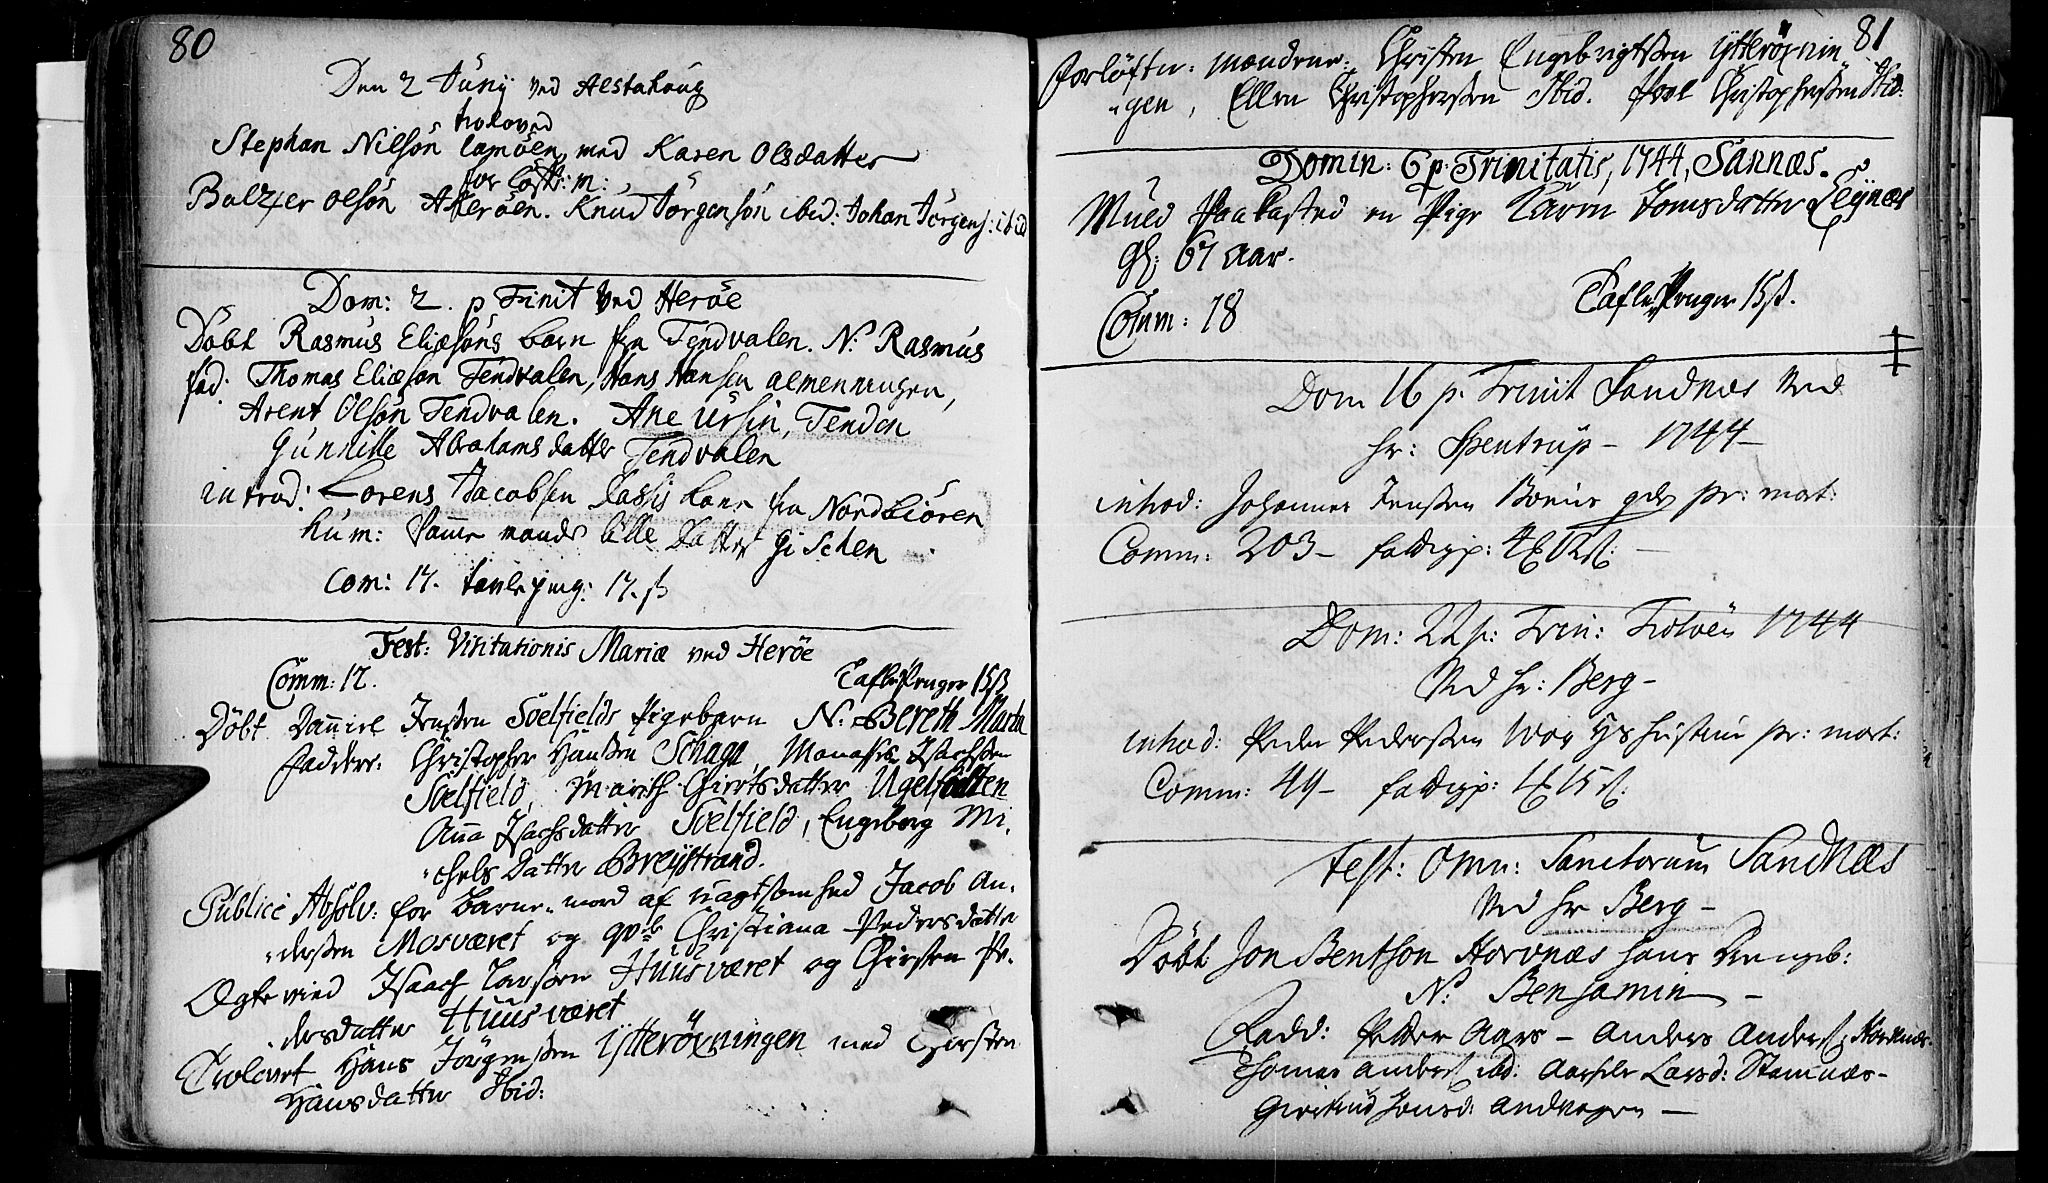 80
Den 2 Junij ved Alstahoug
troloved
Stephan Nilsön med Karen Olsdatter
for
Balzer olsön Akerøen. Knud Jörgensön ibid: Johan Jörgens: ibid
Dom: 2. p Trinit ved Heröe
Döbt Rasmus Eliæsöns barn fra Tendvalen. N: Rasmus
fad: Thomas Eliæsön Tendvalen, Hans Hansen almenningen,
Arent Olsön Tendvalen. Ane Ursin, Tenden
Gunnille Abrahamsdatter Tendvalen
introd: Lorens Jacobsen Kone fra Nordbiören
hum: Samme mands lille Datter Gischen
Com: 17. tavlepeng: 17. ß
Fest: Visitationis Mariæ ved Heröe
Comm: 12. Taflepenger 15 ß
Döbt Danniel Jenssen Söelfields Pigebarn N: Bereth Marta
Faddere: Christopher Hanssen Schaga, Manasses Isachssen
Söelfield, Marith Giertsdatter Ugelfodten
Anna Isachsdatter Söelfield, Engeborg Mi,
chels Datter Breystrand.
Publice Absolv: for barne-mord af uagtsomhed Jacob An,
derssen Mosværet og qvb Christiana Pedersdatter
Ægte vied Isaach Larssen Huusværet og Chirsten Pe,
dersdatter Huusværet
Trolovet Hans Jörgenssen Ytteröxningen med Chirsten
Hansdatter Ibid:
81
forlöfter: mændene: Christen Engebrigtssen Ytteröxnin
gen, Ellen Christopherssen Ibid. Poel Christopherssen Ibid:
Domin: 6 p. Trinitatis, 1744, Sannæs.
Muld Paakasted en Pige Karen Tomsdatter Leynæs
gl: 67 Aar.
Comm: 78 Taflepenger 15 ß.
Dom 16 p. Trinit Sandnæs ved
hr: Spentrup - 1744 -
introd: Johannes Jenssen pr: mort:
Comm: 203 -
Dom: 22 p: Trin: Tiötöen 1744
Ved hr: Berg -
introd: Peder Pederssen hustrue pr: mort:
Comm: 49 -
Fest: Omn: Sanctorum Sandnæs
Ved hr Berg -
Döbt Jon Bentson Horvnæs hans Drengeb:
N: Benjamin -
Fadd: Petter Aars - Anders Anders:
Thomas Anders: ibd: Larsd: Stamnæs -
Giertrud Jonsd: Andvogen -